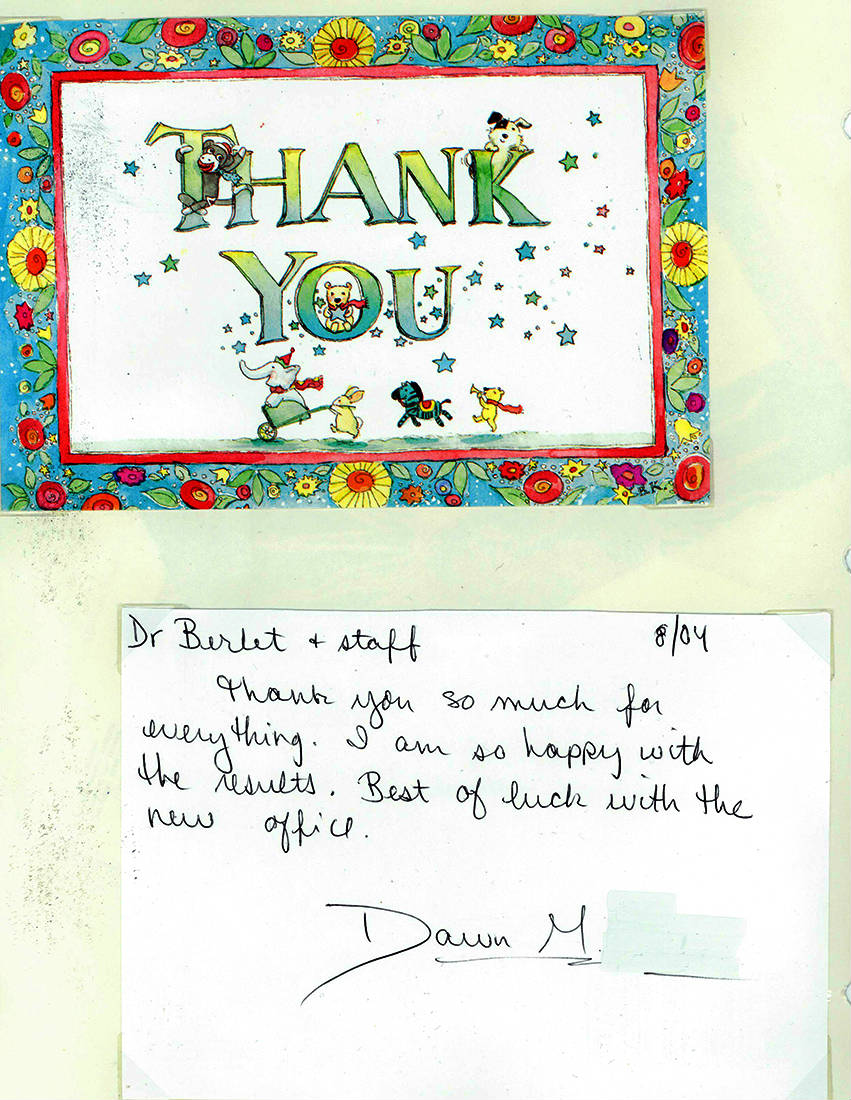 THANK
YOU
B.K.
Dr Berlet + staff 8/04
Thank you so much for
everything. I am so happy with
the results. Best of luck with the
new office.
Dawn M